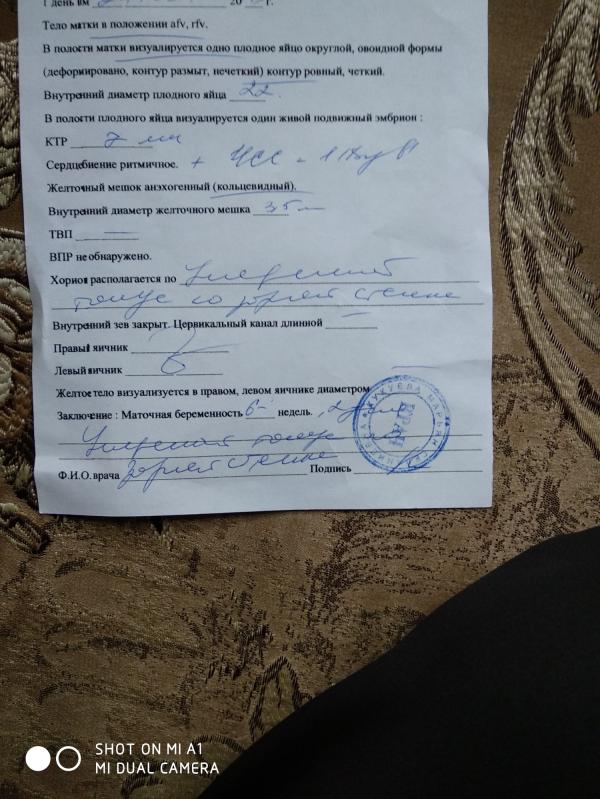 1 день вм 20 г.
Тело матки в положении afv, rfv.
В полости матки визуализируется одно плодное яйцо округлой, овоидной формы
(деформировано, контур размыт, нечеткий) контур ровный, четкий.
Внутренний диаметр плодного яйца 22.
В полости плодного яйца визуализируется один живой подвижный эмбрион :
КТР 7 мм
Сердцебиение ритмичное. + ЧСС -
Желточный мешок анэхогенный (кольцевидный).
Внутренний диаметр желточного мешка 3,5 мм
ТВП —
ВПР не обнаружено.
Хорион располагается по Умеренный
тонус по задней стенке
Внутренний зев закрыт. Цервикальный канал длинной —
Правый яичник
Левый яичник
Желтое тело визуализуется в правом, левом яичнике диаметром
Заключение : Маточная беременность 6- недель.
Умеренный тонус по
Ф.И.О. врача задней стенке Подпись
ВРАЧ
SHOT ON MI A1
MI DUAL CAMERA